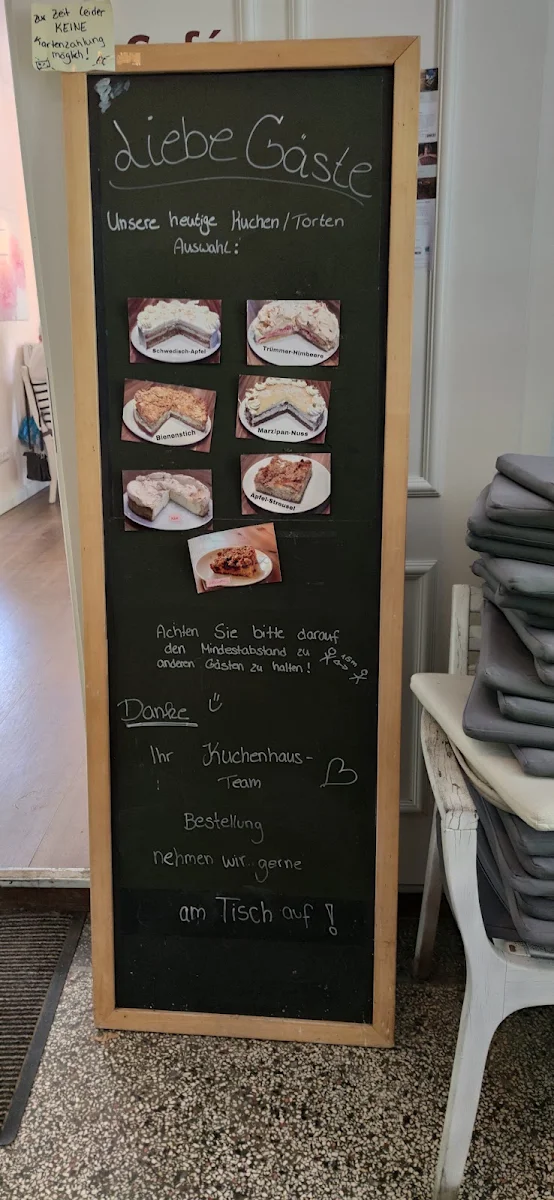 zur Zeit leider
KEINE
Kartenzahlung
möglich!
Café
Liebe Gäste
Unsere heutige Kuchen/Torten
Auswahl:
Schwedisch-Apfel
Trümmer-Himbeere
Bienenstich
Marzipan-Nuss
Apfel-Streusel
Achten Sie bitte darauf
den Mindestabstand zu
anderen Gästen zu halten!
1,5m
Danke
Ihr Kuchenhaus-
Team
Bestellung
nehmen wir gerne
am Tisch auf!